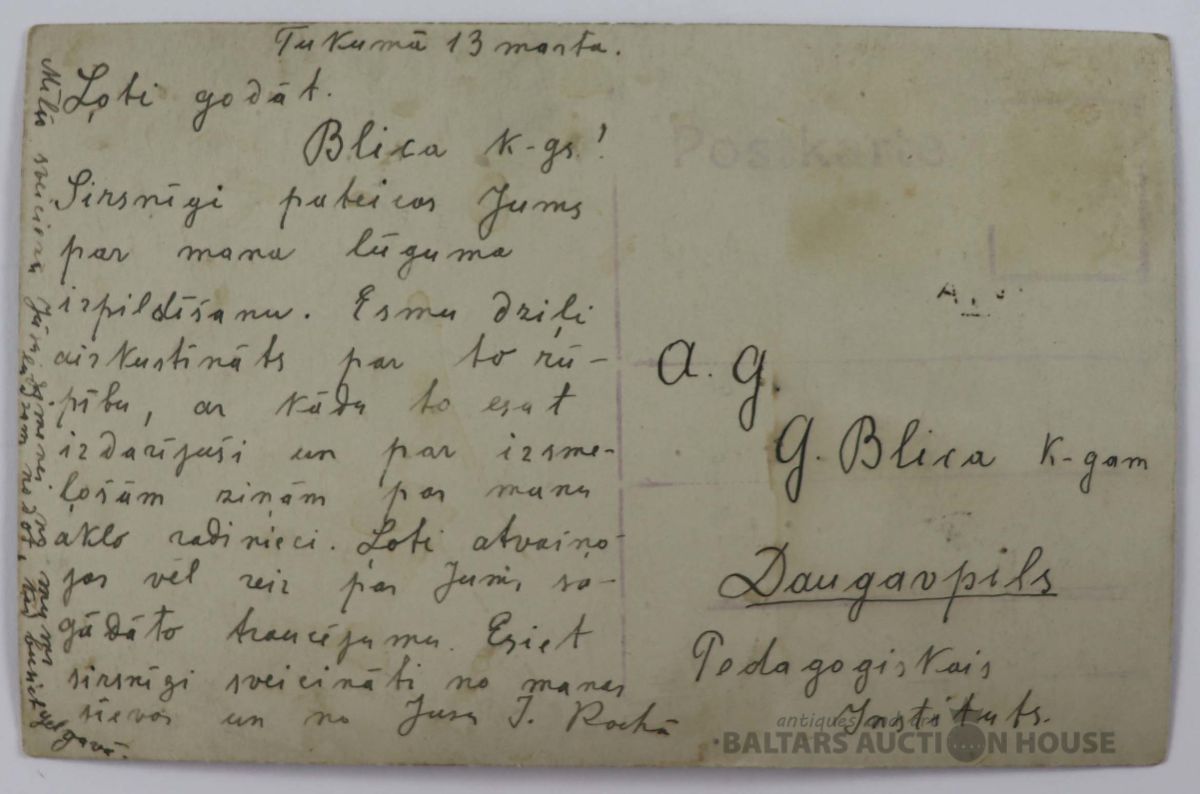 Tukumā 13 marta.
Ļoti godāt.
Blica k-gs!
Sirsnīgi pateicos Jums
par mana lūguma
izpildīšanu. Esmu dziļi
aizkustināts par to rū-
pību, ar kādu to esat
izdarījuši un par izsme-
ļošām ziņām par manu
aklo radinieci. Ļoti atvaiņo-
jos vēl reiz par Jums sa-
gādāto traucējumu. Esiet
sirsnīgi sveicināti no manas
sievas un no Jusu J. Rockā
Mīļu sveicienu Jūsu ģimenei
no mums
kad busiet Jelgavā.
Postkarte
A. G.
G. Blica k-gam
Daugavpils
Pedagogiskais
Instituts.
antiques and art
BALTARS AUCTION HOUSE